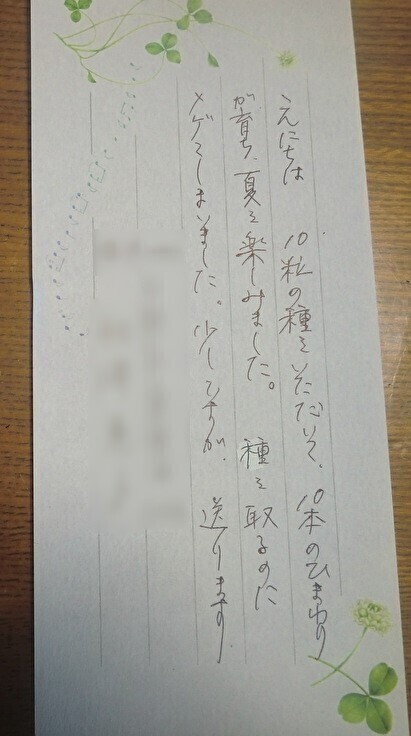 こんにちは　10粒の種をいただいて、10本のひまわり
が育ち、夏を楽しみました。　種を取るのに
メゲてしまいました。少しですが、送ります。